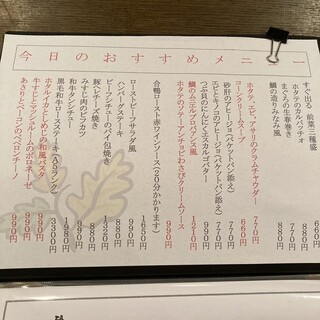 今日のおすすめメニュー
すぐ出る 前菜三種盛 880円
ホタテのカルパッチオ 770円
まぐろの生春巻き 770円
鯛の造りみなみ風 880円
ホタテ、エビ、アサリのクラムチャウダー 770円
コーンクリームスープ 660円
砂肝のアヒージョ(バケットパン添え) 770円
エビとキノコのアヒージョ(バケットパン添え) 990円
つぶ貝のにんにくエスカルゴバター 880円
鯛のムニエルブロバンス風 1210円
ホタテのソテーアンチョビわさびクリームソース 990円
合鴨ロースト赤ワインソース(20分かかります) 1650円
ローストビーフサラダ風 990円
ハンバーグステーキ 880円
ビーフシチューのパイ包焼 1320円
豚ヒレチーズ焼き 880円
みすじ肉のピラカツ 990円
和牛タンシチュー 1980円
黒毛和牛ロースステーキ(A5ランク) 3300円
ホタルイカとしめじの和風パスタ 990円
牛すじとマッシュルームのボロネーゼ 990円
あさりとベーコンのペペロンチーノ 990円